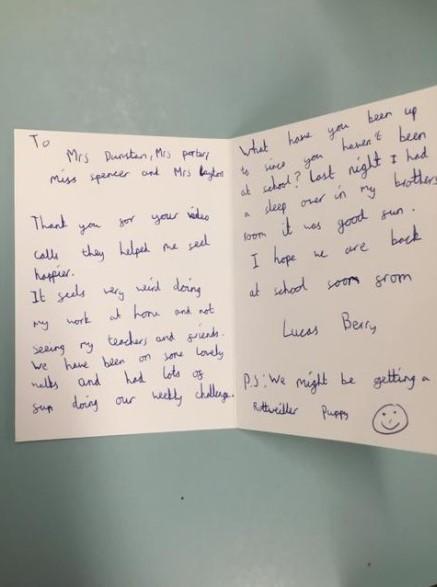 To
Mrs Dunstan, Mrs porter,
miss spencer and Mrs Layton
Thank you for your video
calls they helped me feel
happier.
It feels very weird doing
my work at home and not
seeing my teachers and friends.
We have been on some lovely
walks and had lots of
fun doing our weekly challenge.
What have you been up
to since you haven't been
at school? Last night I had
a sleep over in my brothers
room it was good fun.
I hope we are back
at school soon from
Lucas Berry
P.S: We might be getting a
Rottweiller Puppy